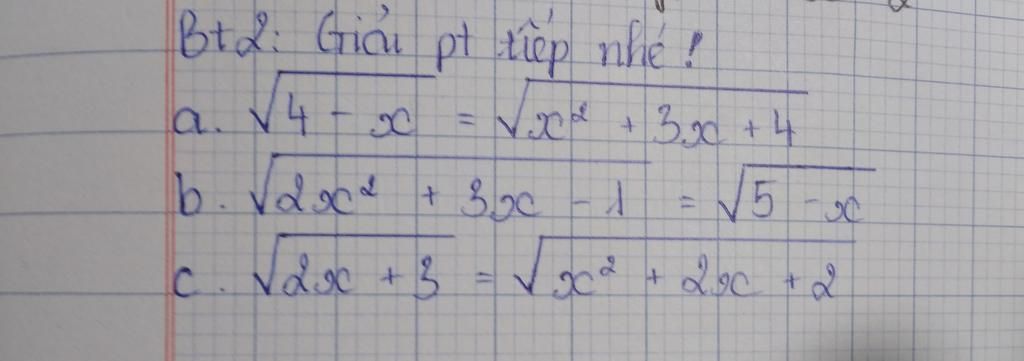 Bt2: Giải pt tiếp nhé!
a. √(4 - x) = √(x² + 3x + 4)
b. √(2x² + 3x - 1) = √(5 - x)
c. √(2x + 3) = √(x² + 2x + 2)